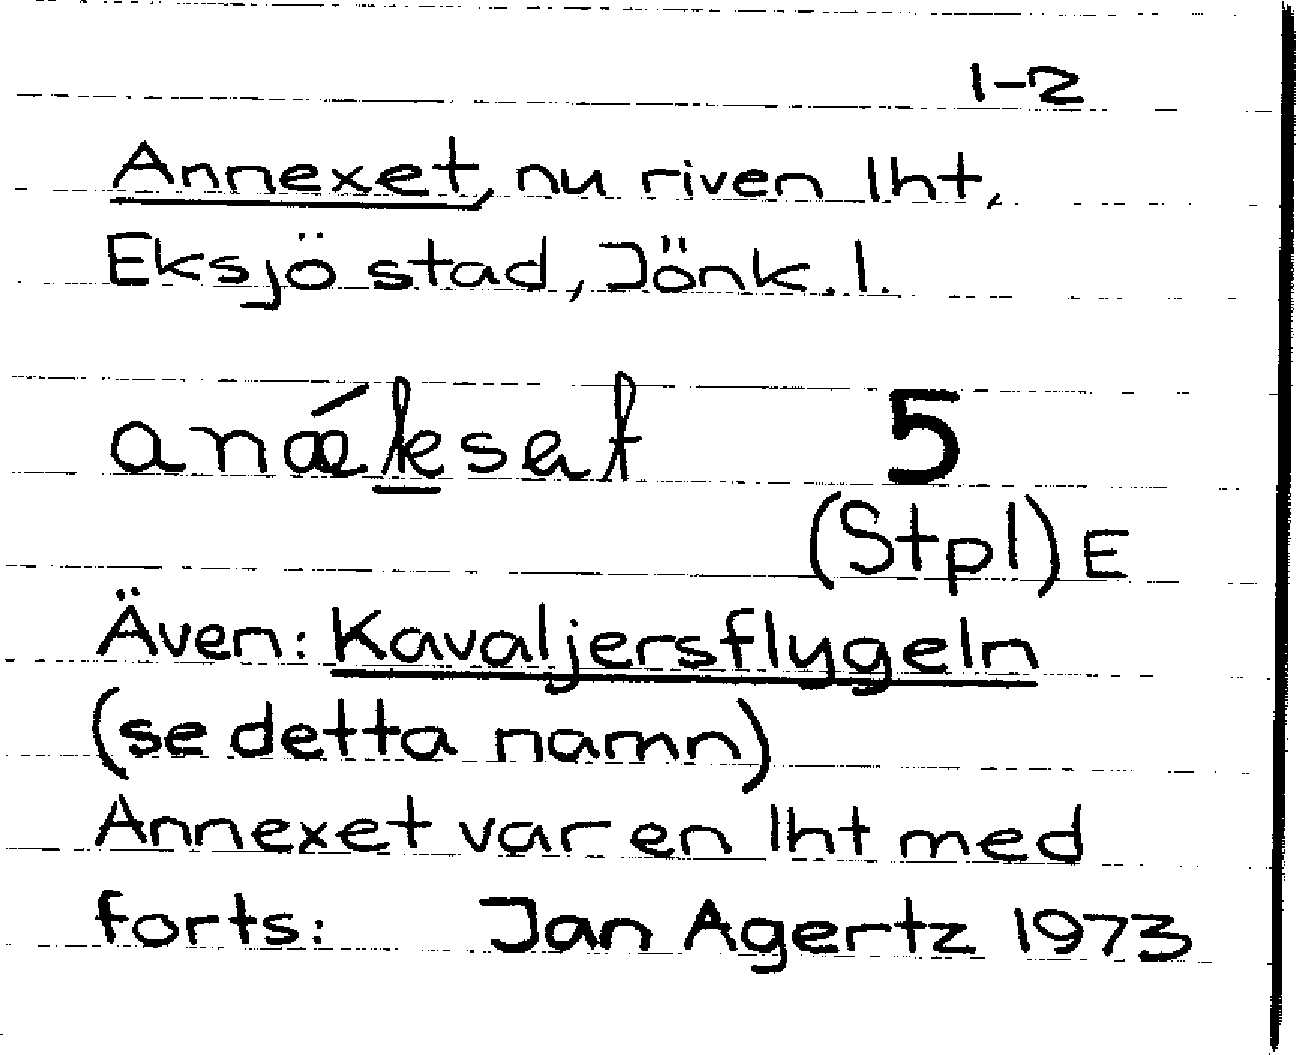 1-2
Annexet, nu riven lht,
Eksjö stad, Jönk. l.
anǽksat 5
(Stpl) E
Även: Kavaljersflygeln
(se detta namn)
Annexet var en lht med
forts: Jan Agertz 1973